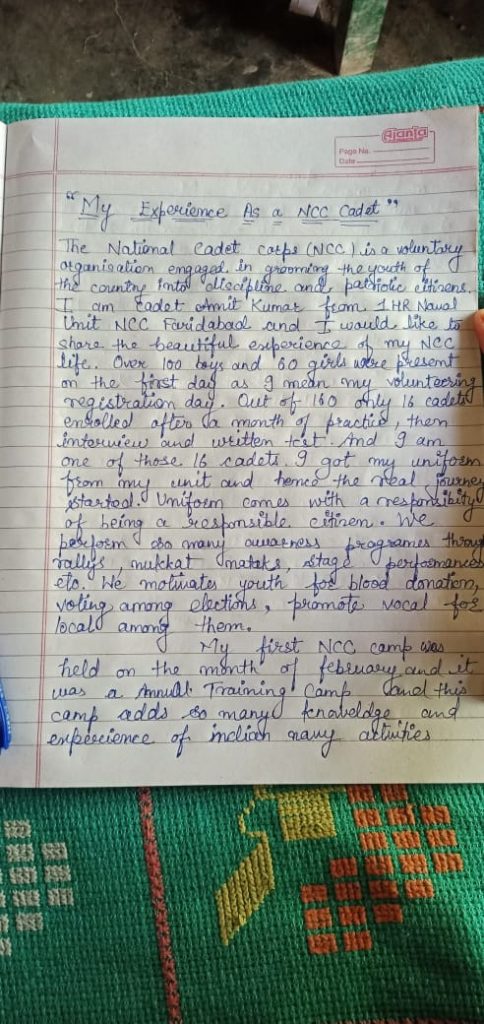 Ajanta
Page No.
Date
"My Experience As a NCC Cadet"
The National Cadet Corps (NCC) is a voluntary
organisation engaged in grooming the youth of
the country into discipline and patriotic citizens.
I am Cadet Amit Kumar from 1 HR Naval
Unit NCC Faridabad and I would like to
share the beautiful experience of my NCC
life. Over 100 boys and 60 girls were present
on the first day as I mean my volunteering
registration day. Out of 160 only 16 cadets
enrolled after a month of practice, them
interview and written test. And I am
one of those 16 cadets. I got my uniform
from my unit and hence the real journey
started. Uniform comes with a responsibity
of being a responsible citizen. We
perform so many awarness programes throug
rallys, nukkat nataks, stage performances
etc. We motivates youth for blood donation,
voting among elections, promote vocal for
local among them.
My first NCC camp was
held on the month of february and it
was a Annual Training Camp and this
camp adds so many knaveldge and
experience of indian navy activities